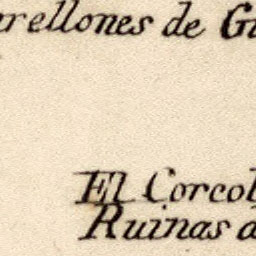 rellones de G
El Corcol
Ruinas d